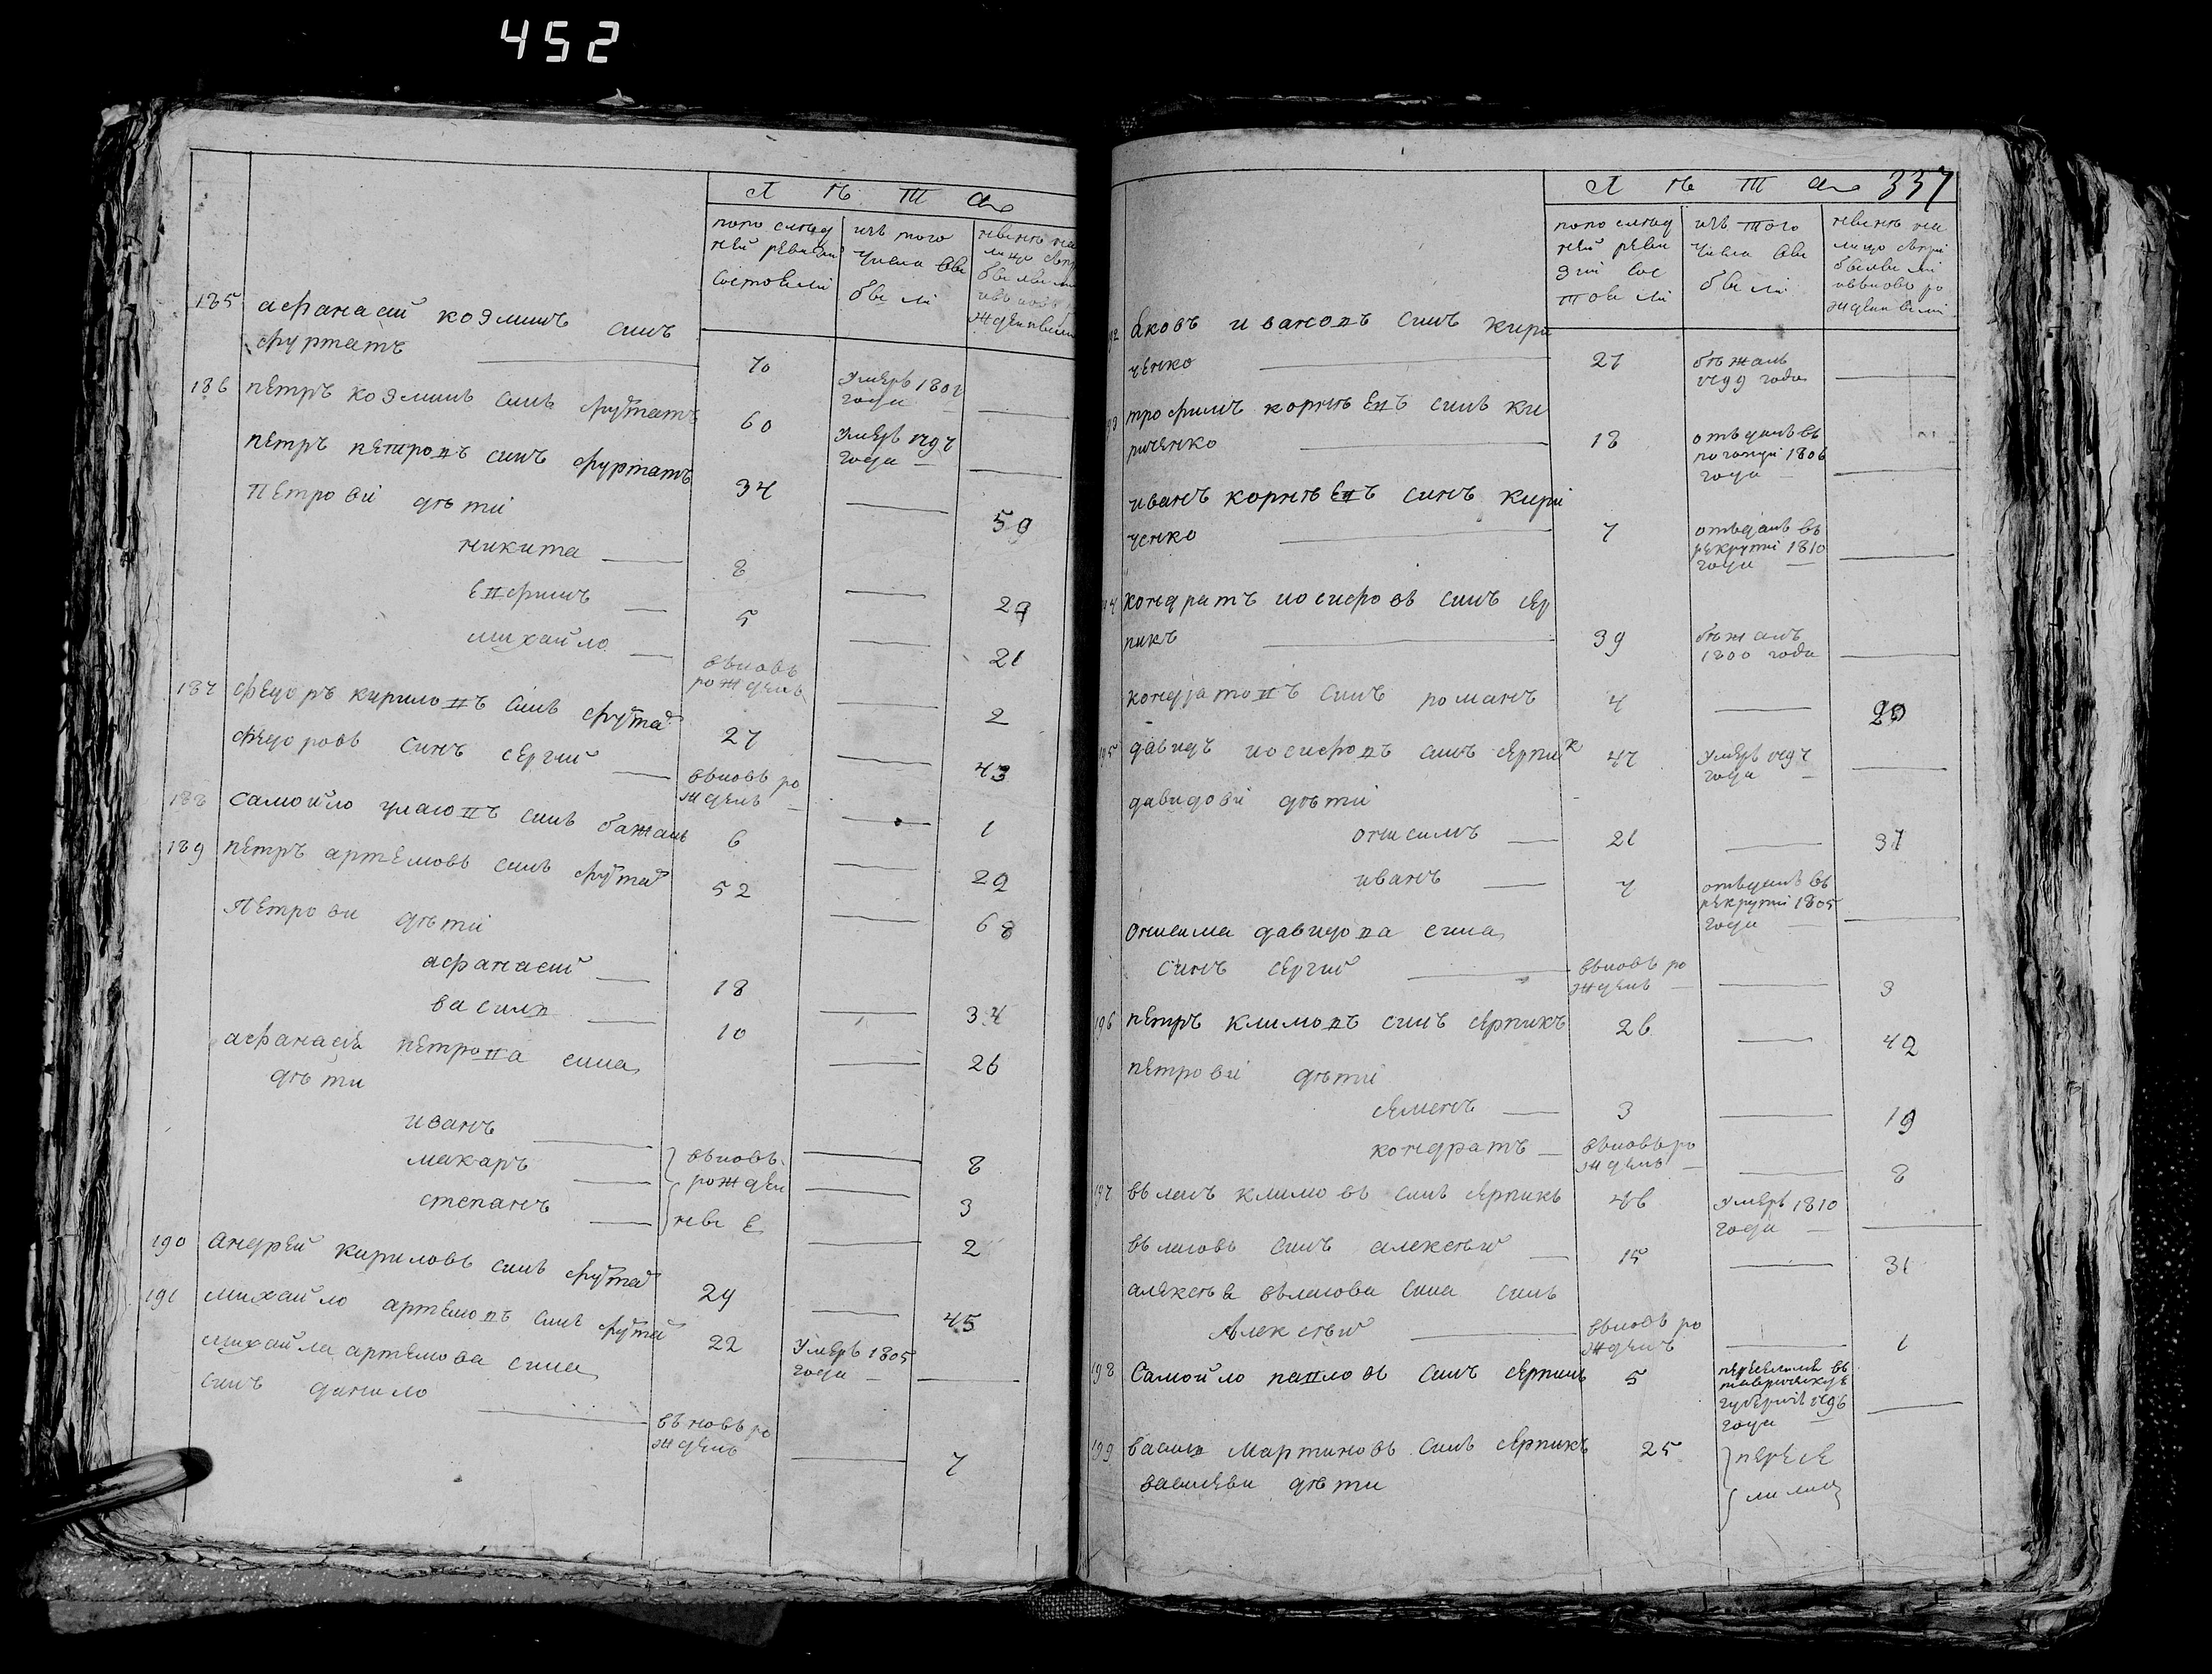 452
Л ѣ т а
попослед
ней ревизии
состояли
изъ того
числа вы
были
185 афанасий козминъ синъ
фурта тъ
70
умеръ 1801
года
186 петръ козминъ синъ футатъ
60
умеръ 1797
года
петръ петровъ синъ фуртатъ
34
59
Петрови дѣти
никита
8
29
евфимъ
5
21
михайло
вновь
рожденъ
2
187 федоръ кириловъ синъ фута
27
43
федоровъ синъ сергий
вновь ро
жденъ
1
188 самойло улаговъ синъ бажанъ
6
22
189 петръ артемовъ синъ фута
52
68
Петрови дѣти
афанасий
18
34
василь
10
26
афанасія петрова сина
дѣти
иванъ
8
макаръ
вновь
рожден
3
степанъ
ные
2
190 андрей кириловъ синъ фута
29
45
191 михайло артемовъ синъ фута
22
умеръ 1805
года
михайла артемова сина
синъ данило
вновь ро
жденъ
7
Л ѣ т а 337
попослед
ней реви
зии сос
тояли
изъ того
числа вы
были
ныне на
лицо съ при
былыми
и вновь ро
жденными
192 яковъ ивановъ синъ кири
ченко
27
бѣжалъ
1799 года
трофимъ корнѣевъ синъ ки
риченко
18
отъданъ въ
погонци 1806
года
иванъ корнѣевъ синъ кири
ченко
7
отъданъ въ
рекрути 1810
года
194 кондратъ иосифовъ синъ сер
пикъ
39
бѣжалъ
1800 года
кондратовъ синъ романъ
4
20
195 давидъ иосифовъ синъ серпик
47
умеръ 1797
года
давидови дѣти
онисимъ
21
37
иванъ
7
отъданъ въ
рекрути 1805
года
онисима давидова сина
синъ сергий
вновь ро
жденъ
3
196 петръ климовъ синъ серпикъ
26
42
петрови дѣти
семенъ
3
19
кондратъ
вновь ро
жденъ
8
197 власъ климовъ синъ серпикъ
46
умеръ 1810
года
власовъ синъ алексѣй
15
31
алексѣя власова сина синъ
Алексѣй
вновь ро
жденъ
1
198 самойло павловъ синъ серпикъ
5
переселился въ
таврическую
губернию 1796
года
199 василь мартиновъ синъ серпикъ
25
пересе
лились
василеви дѣти